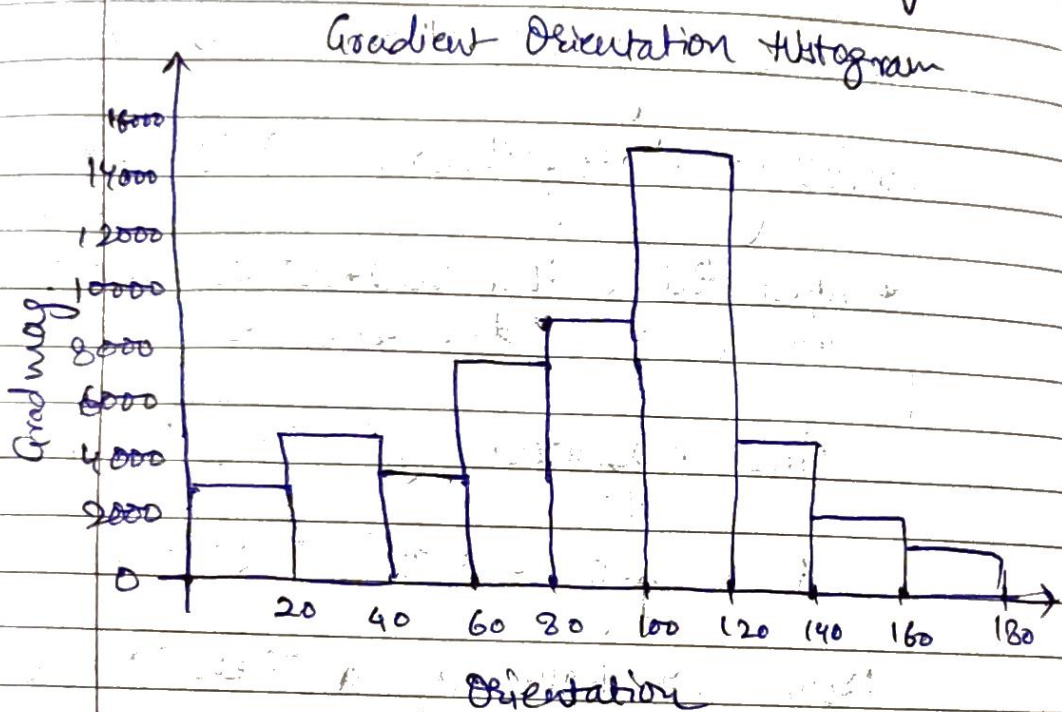 Gradient Orientation Histogram
16000
14000
12000
10000
8000
6000
4000
2000
0
Grad mag
20 40 60 80 100 120 140 160 180
Orientation